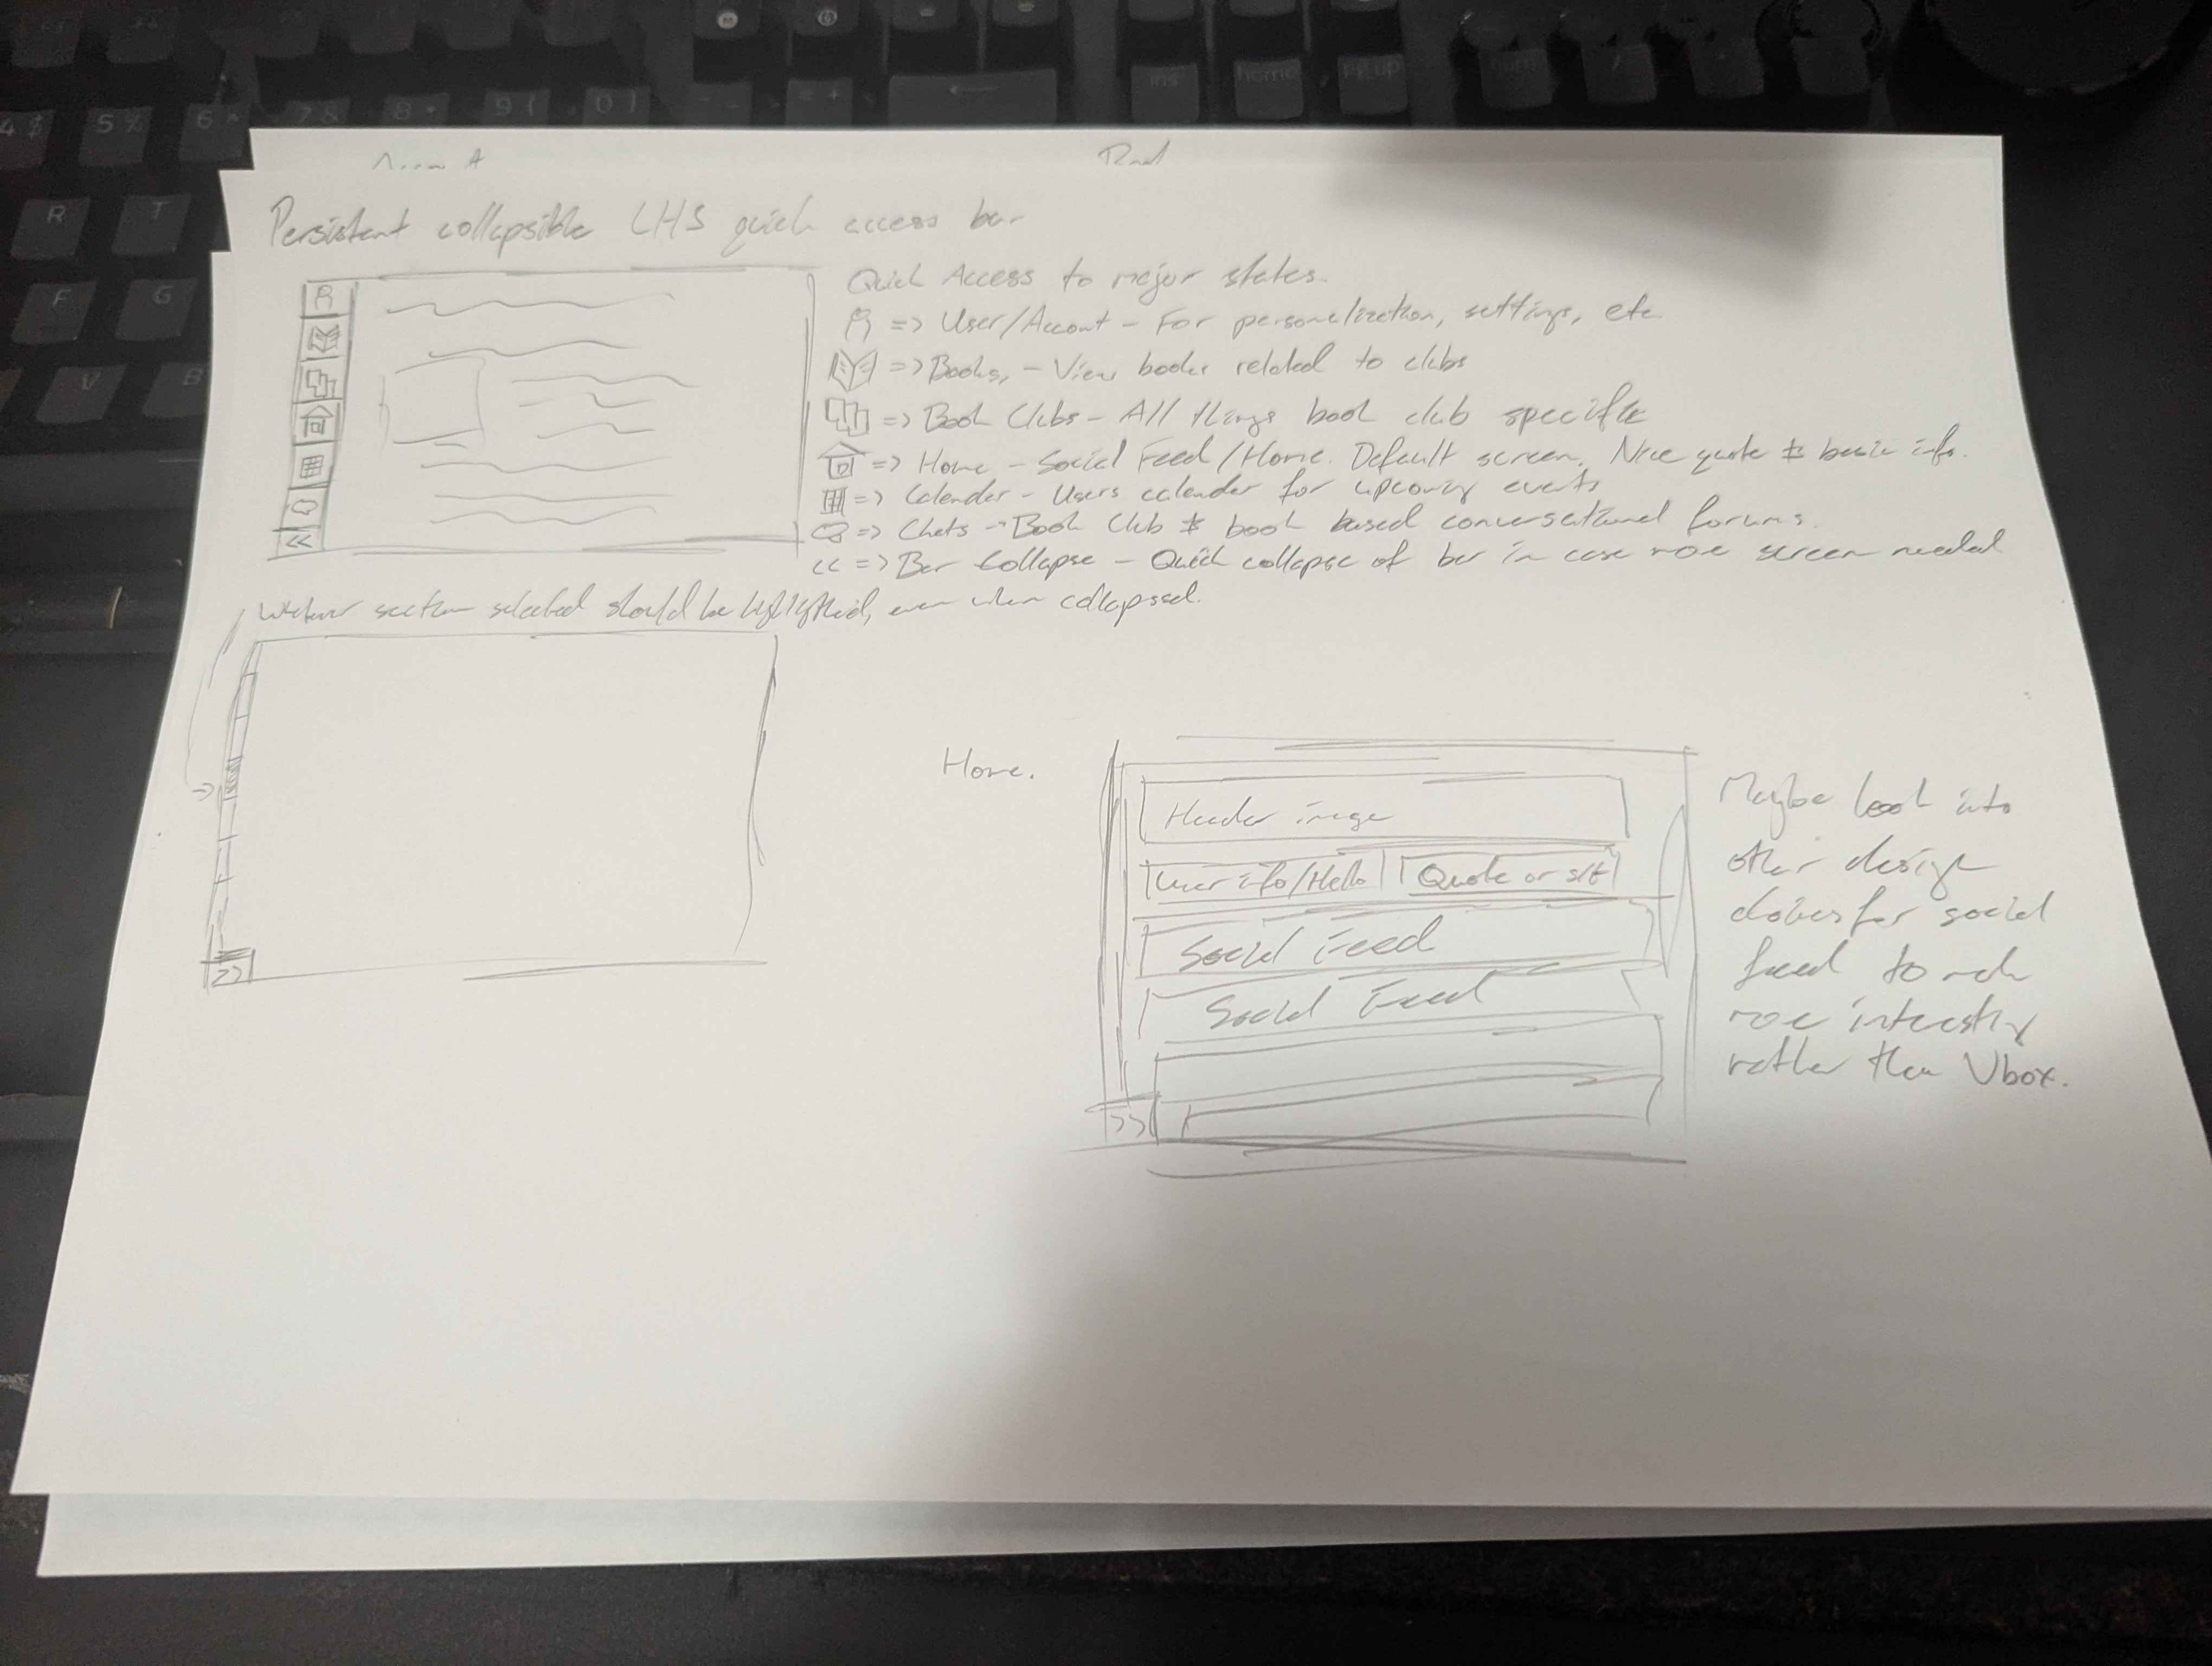 4 $ 5 % 6 ^ 7 & 8 * 9 ( 0 ) - = +
ins home pg up num / *
R T
F G
V B
A
Persistent collapsible LHS quick access bar
Quick Access to major states.
=> User/Account - For personalization, settings, etc
=> Books, - View books related to clubs
=> Book Clubs - All things book club specific
=> Home - Social Feed/Home. Default screen. Nice quote & basic info.
=> Calender - Users calender for upcoming events
=> Chats - Book Club & book based conversational forums.
<< => Bar Collapse - Quick collapse of bar in case more screen needed
<<
section selected should be highlighted, even when collapssed.
>>
Home.
Header image
User info/Hello
Quote or s/t
Social Feed
Social Feed
>>
Maybe look into
other design
for social
feed to make
more interesting
rather than Vbox.